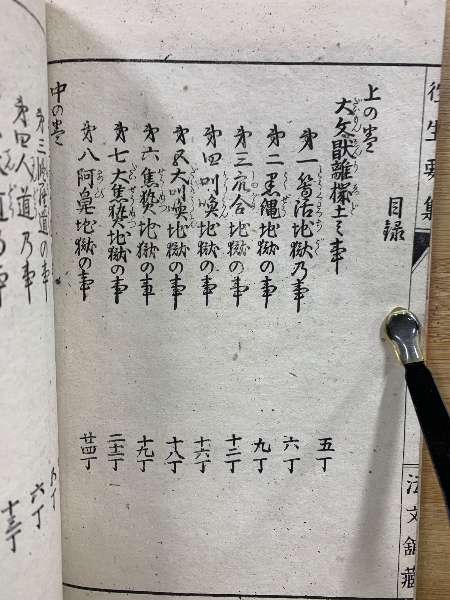 往生要集
目録
上の巻
大文厭離穢土之事
第一等活地獄乃事 五丁
第二黒縄地獄の事 六丁
第三衆合地獄の事 九丁
第四叫喚地獄の事 十二丁
第五大叫喚地獄の事 十六丁
第六焦熱地獄の事 十八丁
第七大焦熱地獄の事 十九丁
第八阿鼻地獄の事 二十二丁
中の巻 廿四丁
第四人道乃事 六丁
十三丁
法文舘蔵